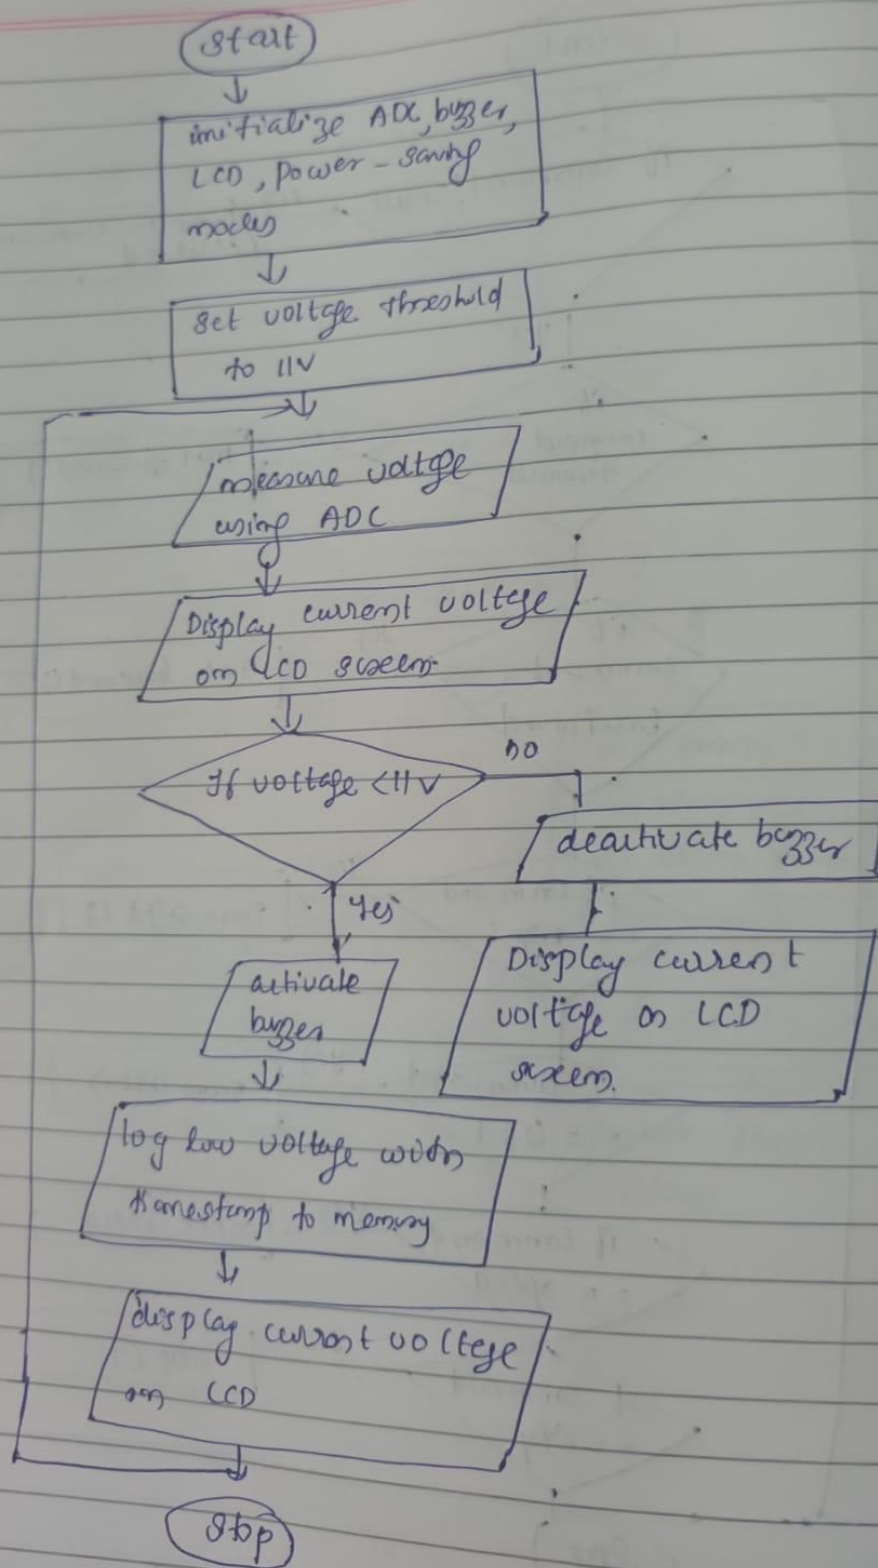 Start
initialize ADC, buzzer,
LCD, power-saving
modes
Set voltage threshold
to 11V
measure voltage
using ADC
Display current voltage
on LCD screen
If voltage <11V
no
deactivate buzzer
Display current
voltage on LCD
screen.
Yes
activate
buzzer
log low voltage with
timestamp to memory
display current voltage
on LCD
Stop